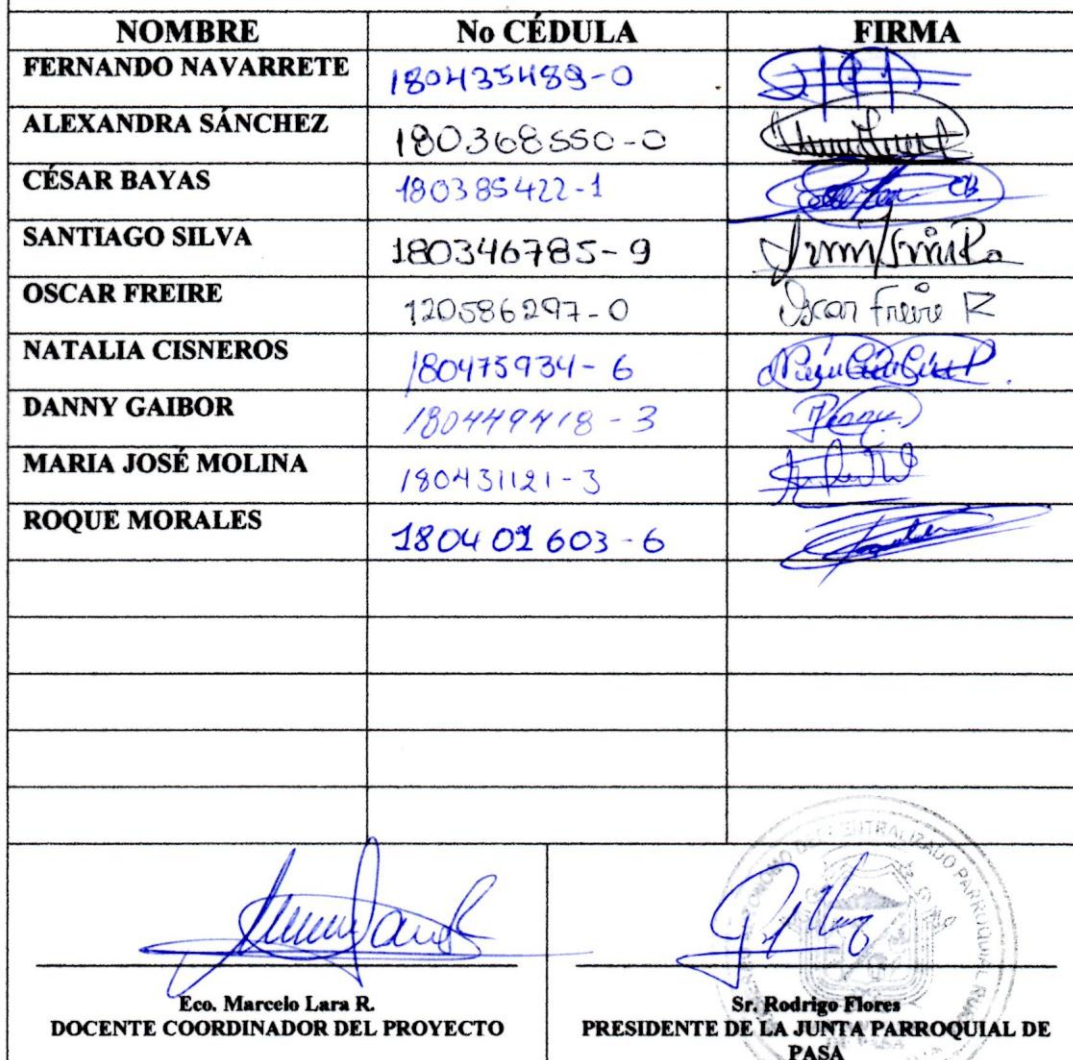 NOMBRE No CÉDULA FIRMA
FERNANDO NAVARRETE 180435489-0
ALEXANDRA SÁNCHEZ 180368550-0
CÉSAR BAYAS 180385422-1 CB
SANTIAGO SILVA 180346785-9
OSCAR FREIRE 120586297-0 Oscar Freire R
NATALIA CISNEROS 180475934-6
DANNY GAIBOR 180449418-3
MARIA JOSÉ MOLINA 180431121-3
ROQUE MORALES 180401603-6
Eco. Marcelo Lara R.
DOCENTE COORDINADOR DEL PROYECTO
Sr. Rodrigo Flores
PRESIDENTE DE LA JUNTA PARROQUIAL DE
PASA
PARROQUIAL